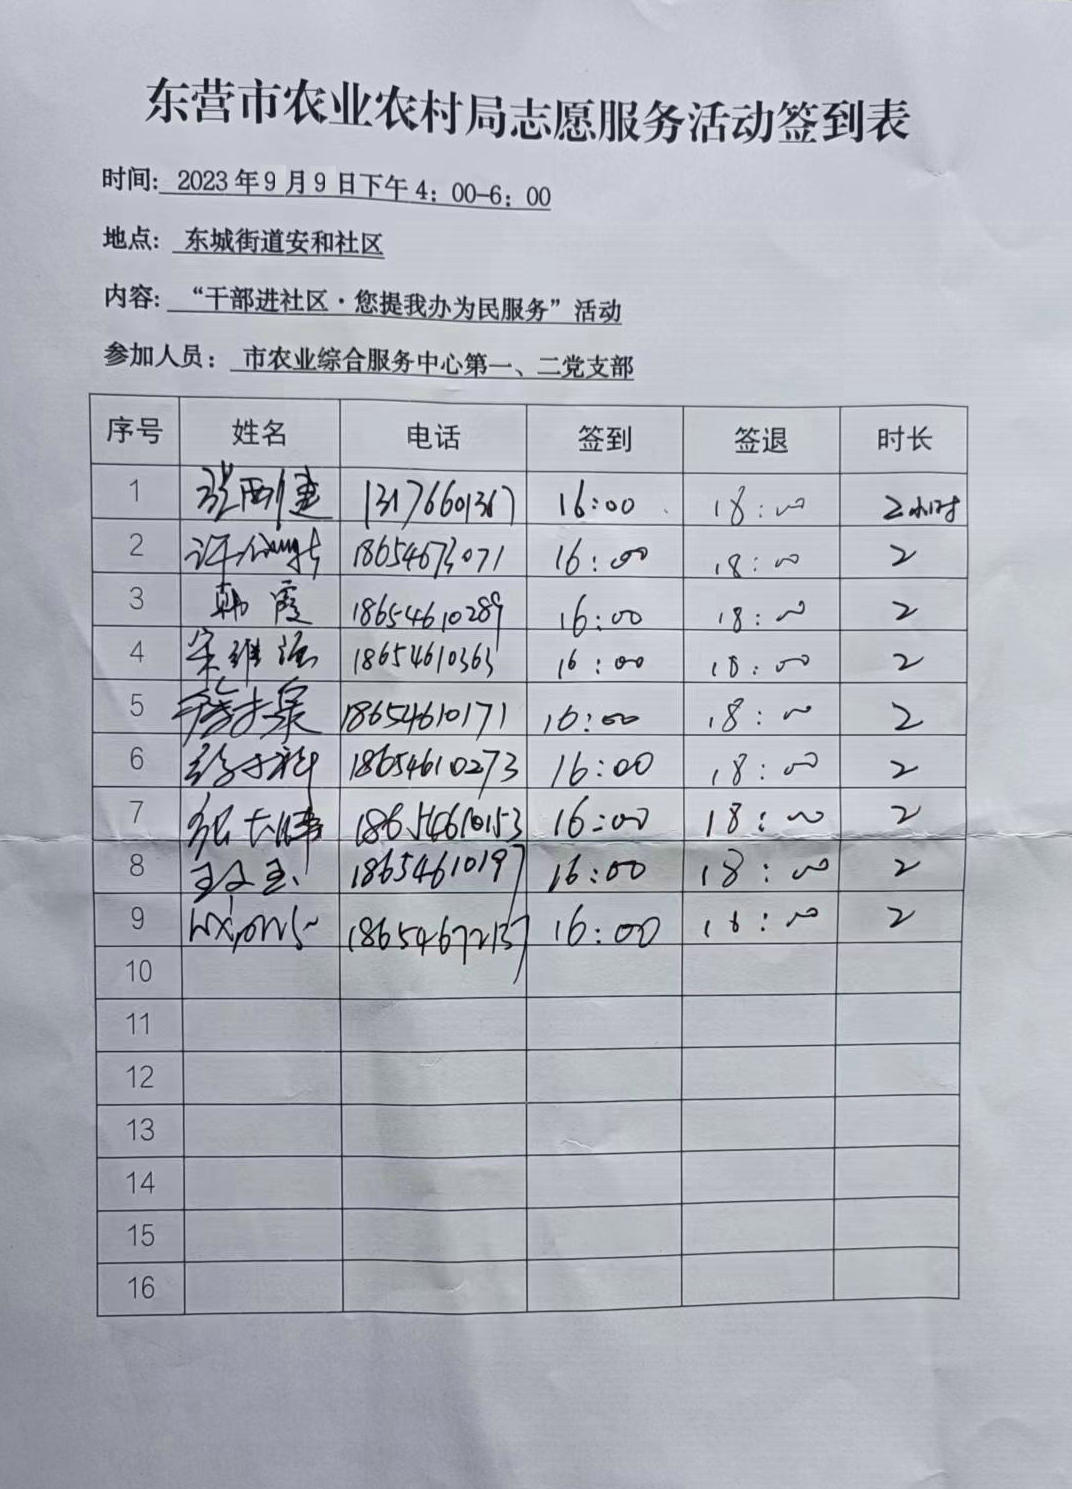 东营市农业农村局志愿服务活动签到表
时间: 2023年9月9日下午4：00-6：00
地点: 东城街道安和社区
内容: “干部进社区·您提我办为民服务”活动
参加人员: 市农业综合服务中心第一、二党支部
序号 姓名 电话 签到 签退 时长
1 13176601367 16:00 18:00 2小时
2 18654673071 16:00 18:00 2
3 韩霞 18654610289 16:00 18:00 2
4 宋维强 18654610363 16:00 18:00 2
5 18654610171 16:00 18:00 2
6 18654610273 16:00 18:00 2
7 18654610153 16:00 18:00 2
8 18654610197 16:00 18:00 2
9 18654672137 16:00 18:00 2
10
11
12
13
14
15
16